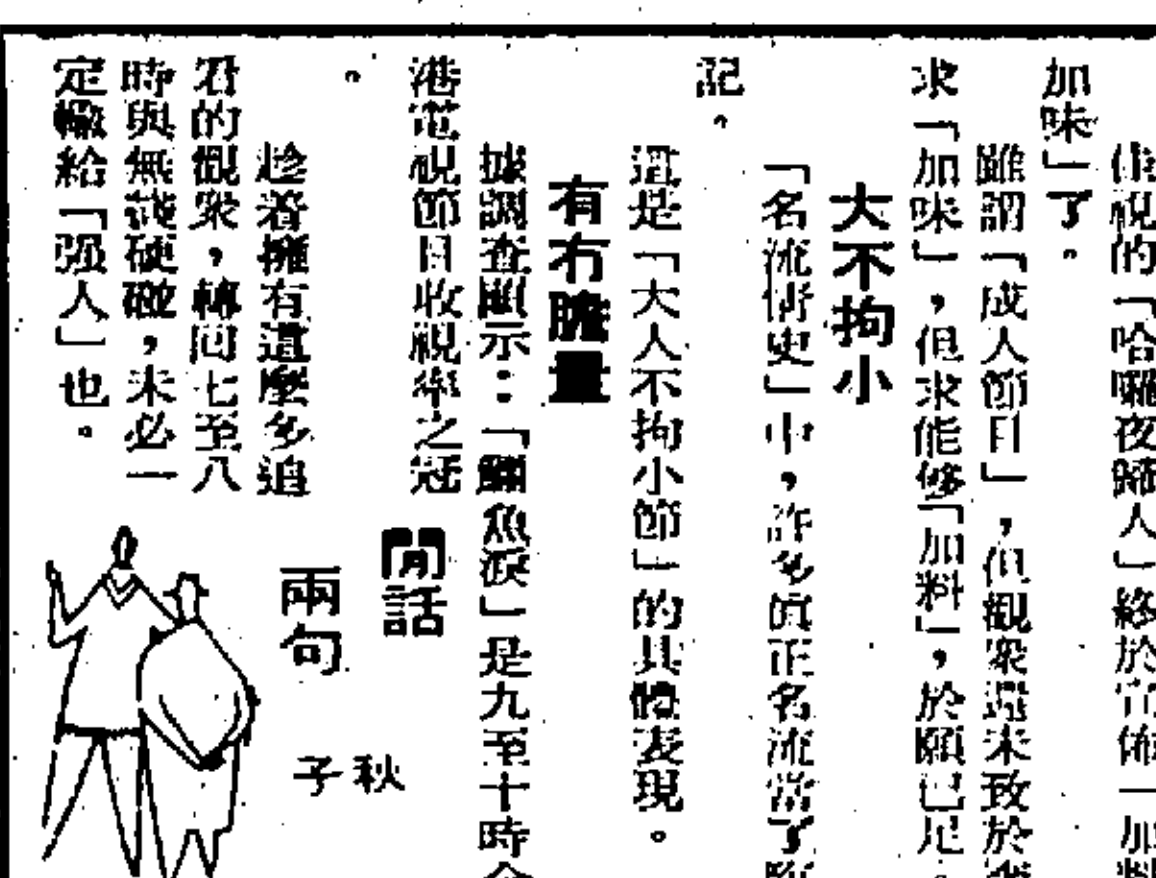 佳視的「哈囉夜歸人」終於宣佈「加料
加味」了。
雖謂「成人節目」,但觀衆還未致於
求「加味」,但求能够「加料」,於願已足。
大不拘小
「名流情史」中,許多眞正名流當了
記。
這是「大人不拘小節」的具體表現。
有冇膽量
據調查顯示:「鱷魚淚」是九至十時全
港電視節目收視率之冠
。
趁着擁有這麼多追
看的觀衆,轉回七至八
時與無綫硬碰,未必一
定輸給「强人」也。
閒話
兩句
秋子